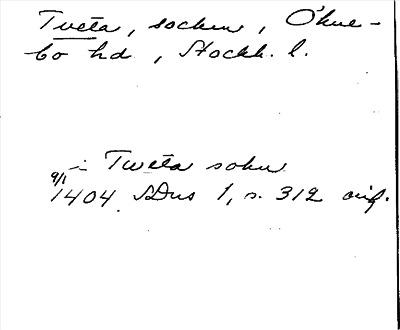 Tveta, socken, Ökne-
bo hd, Stockh. l.
i Tweta sokn
9/1 1404 SDns 1, s. 312 orig.